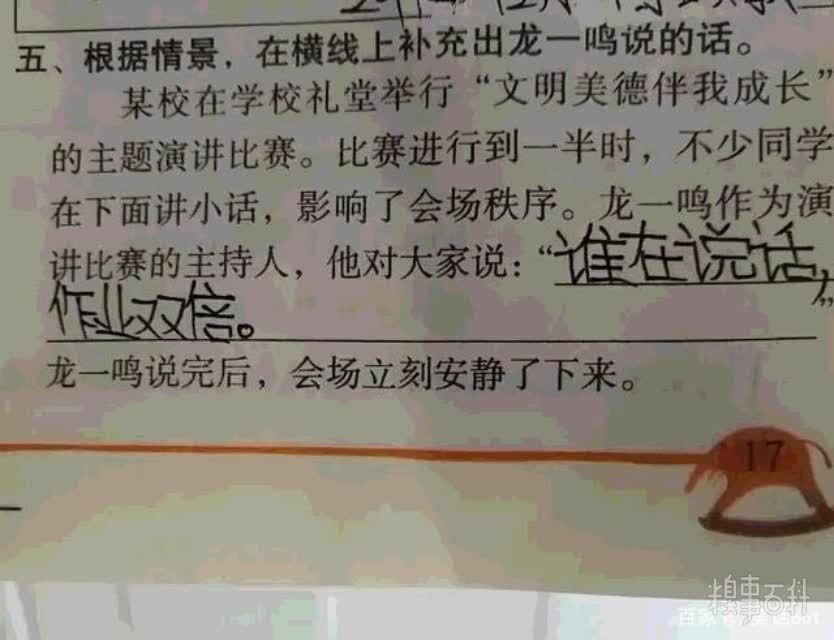 五、根据情景，在横线上补充出龙一鸣说的话。
某校在学校礼堂举行“文明美德伴我成长”
的主题演讲比赛。比赛进行到一半时，不少同学
在下面讲小话，影响了会场秩序。龙一鸣作为演
讲比赛的主持人，他对大家说：“谁在说话，
作业双倍。”
龙一鸣说完后，会场立刻安静了下来。
17
糗事百科